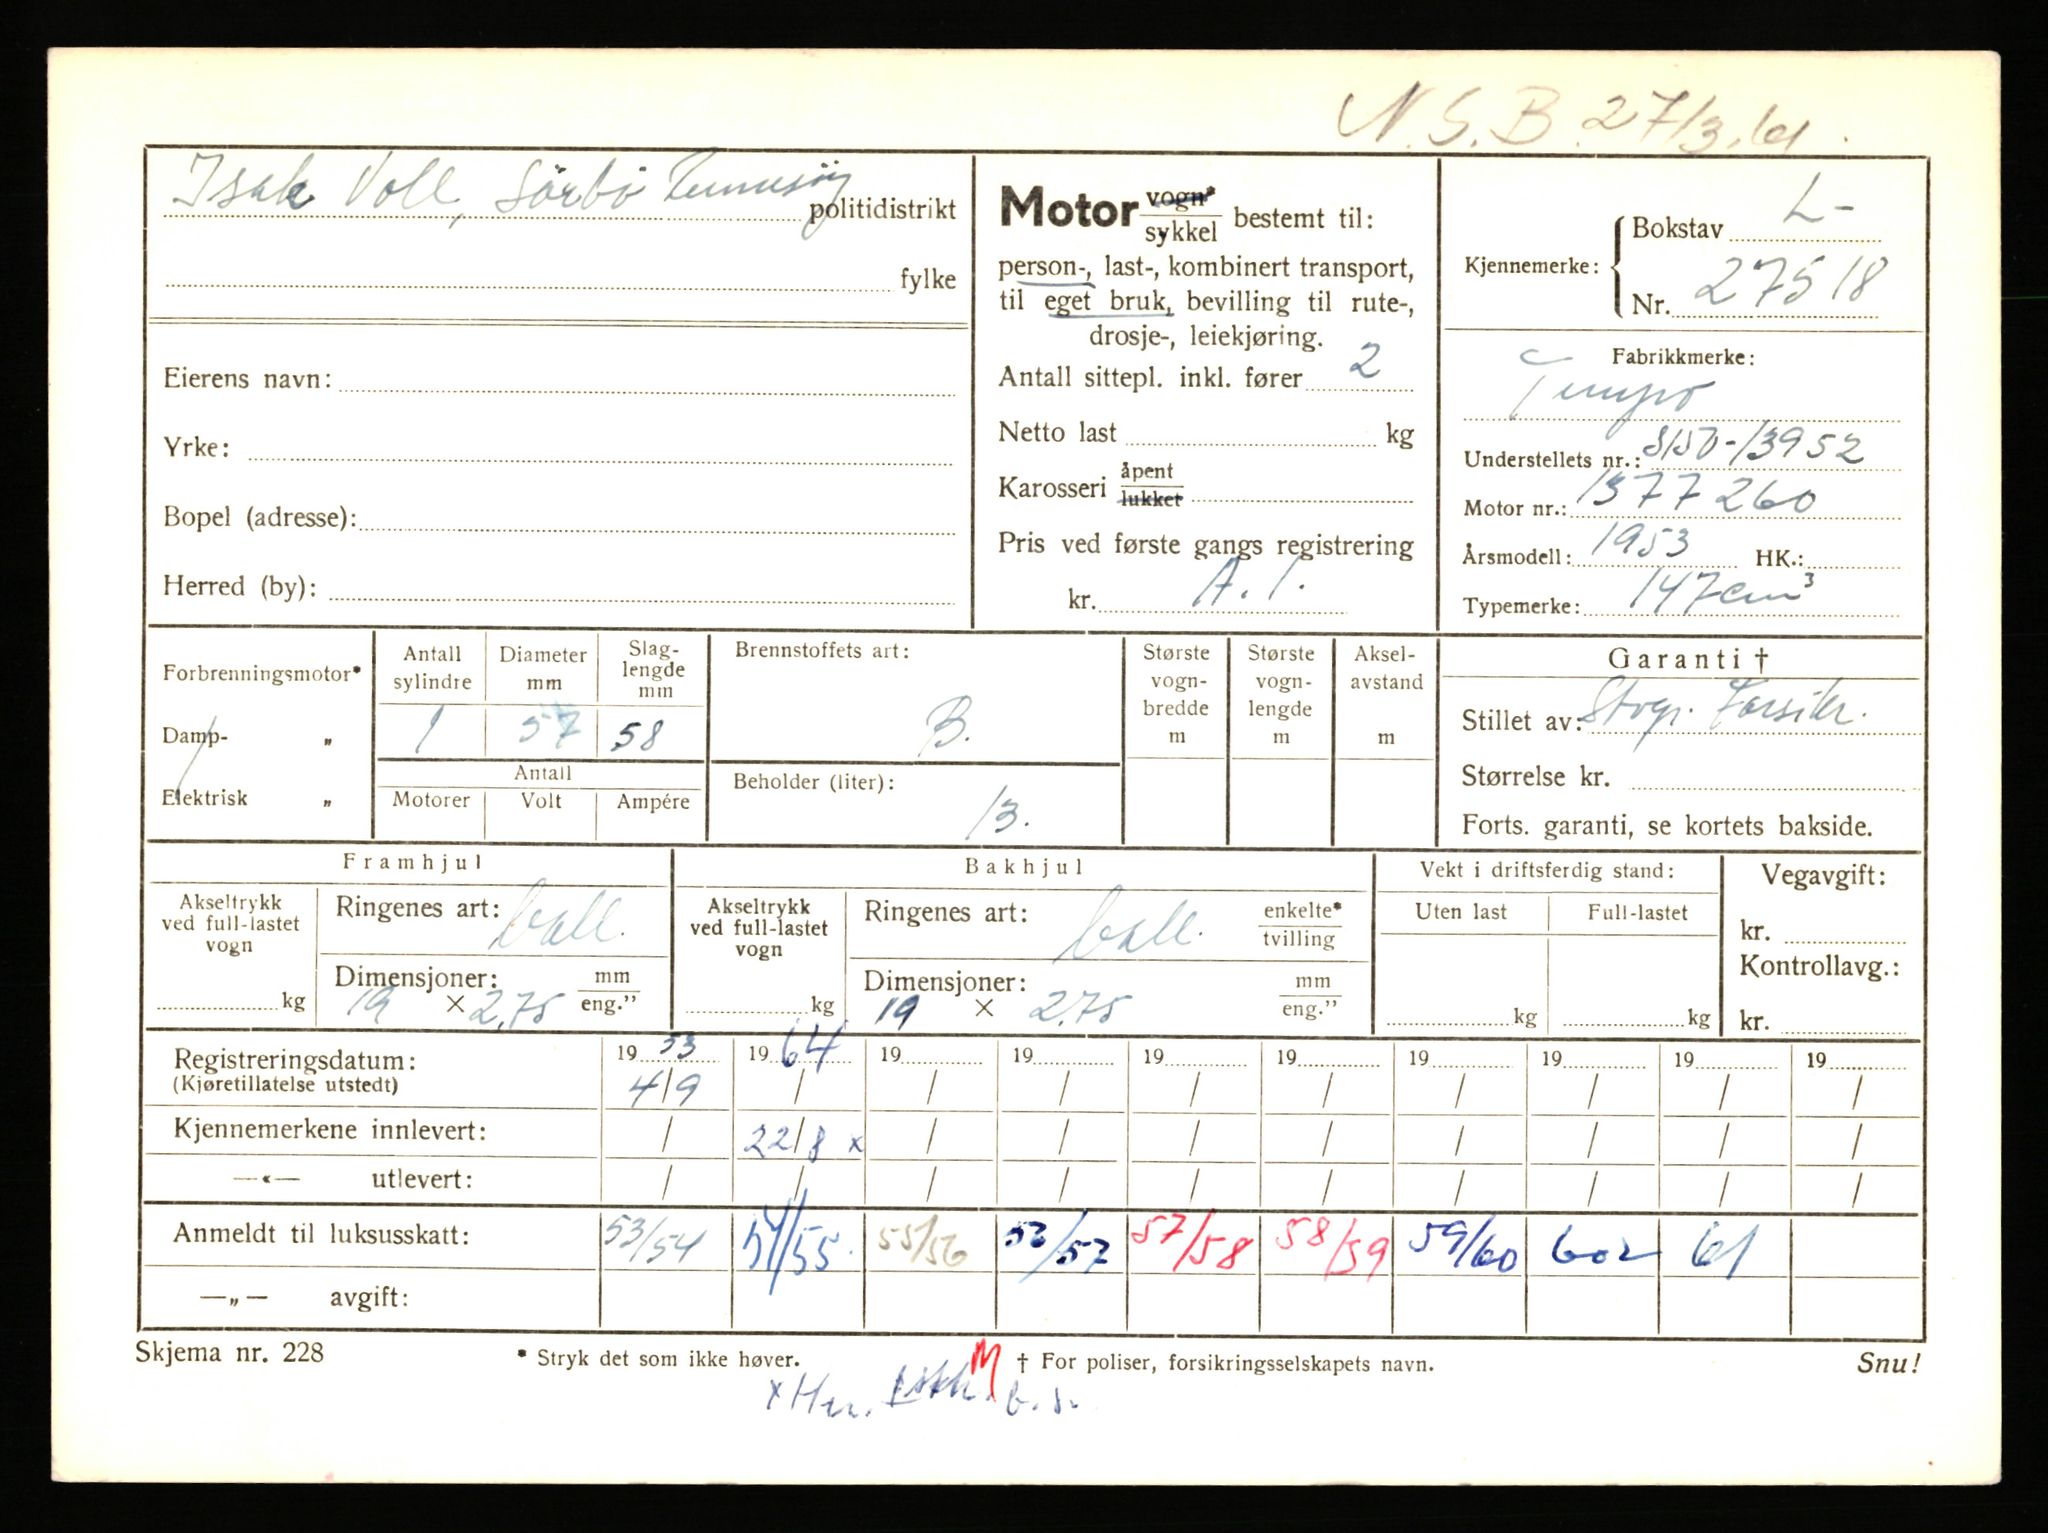 N.S.B. 27/3.61.
Isak Voll, Sörbö Rennesöy politidistrikt
fylke
Eierens navn:
Yrke:
Bopel (adresse):
Herred (by):
Motor vogn* sykkel bestemt til:
person-, last-, kombinert transport,
til eget bruk, bevilling til rute-,
drosje-, leiekjøring.
Antall sittepl. inkl. fører 2
Netto last kg
Karosseri åpent lukket
Pris ved første gangs registrering
kr. A. I.
Kjennemerke: Bokstav L-
Nr. 27518
Fabrikkmerke:
Tempo
Understellets nr.: S150-13952
Motor nr.: 1377260
Årsmodell: 1953 HK.:
Typemerke: 147cm³
Forbrenningsmotor*
Damp- „
Elektrisk „
Antall sylindre Diameter mm Slag-lengde mm
1 57 58
Antall
Motorer Volt Ampére
Brennstoffets art:
B.
Beholder (liter):
13.
Største vogn-bredde m
Største vogn-lengde m
Aksel-avstand m
Garanti †
Stillet av: Stvgr. Forsikr.
Størrelse kr.
Forts. garanti, se kortets bakside.
Framhjul
Akseltrykk ved full-lastet vogn
kg
Ringenes art: ball.
Dimensjoner: mm eng.”
19 × 2,75
Bakhjul
Akseltrykk ved full-lastet vogn
kg
Ringenes art: ball. enkelte* tvilling
Dimensjoner: mm eng.”
19 × 2,75
Vekt i driftsferdig stand:
Uten last Full-lastet
kg kg
Vegavgift:
kr.
Kontrollavg.:
kr.
Registreringsdatum: 19 53 19 64 19 19 19 19 19 19 19 19
(Kjøretillatelse utstedt) 4/9 / / / / / / / / /
Kjennemerkene innlevert: / 22/8 x / / / / / / / /
—«— utlevert: / / / / / / / / / /
Anmeldt til luksusskatt: 53/54 54/55. 55/56 56/57 57/58 58/59 59/60 602 61
—„— avgift:
Skjema nr. 228 * Stryk det som ikke høver. † For poliser, forsikringsselskapets navn. Snu!
M